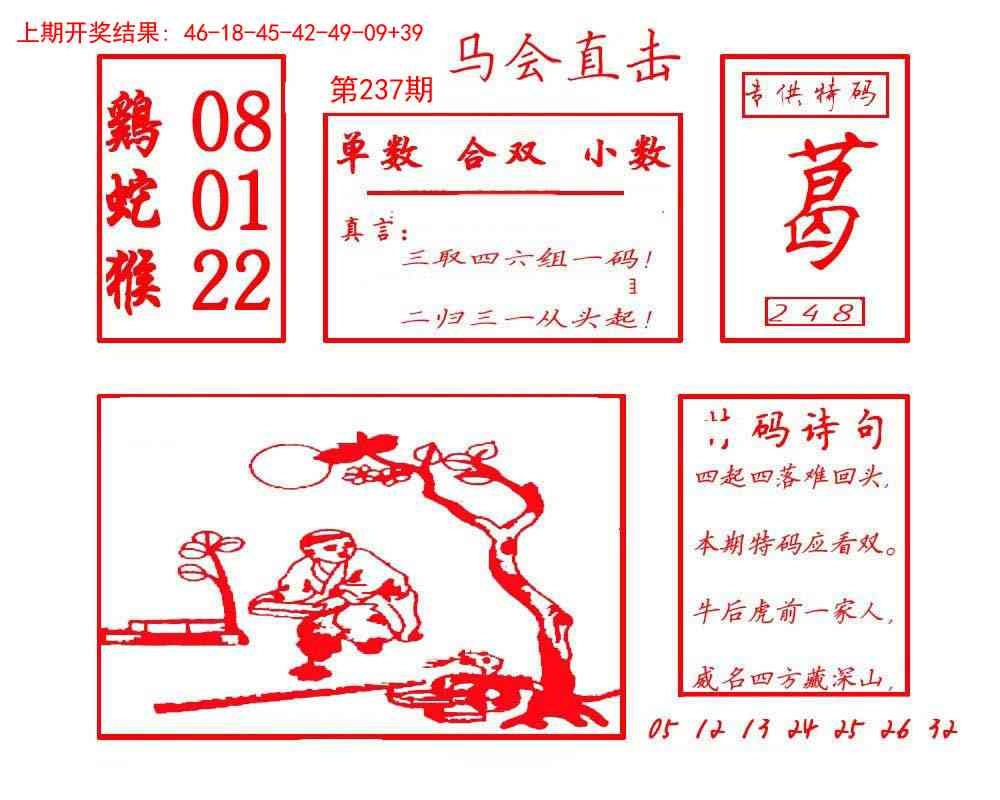 上期开奖结果: 46-18-45-42-49-09+39
马会直击
第237期
鷄 08
蛇 01
猴 22
单数 合双 小数
真言:
三取四六组一码!
二归三一从头起!
专供特码
葛
248
码诗句
四起四落难回头,
本期特码应看双。
牛后虎前一家人,
威名四方藏深山,
05 12 13 24 25 26 32